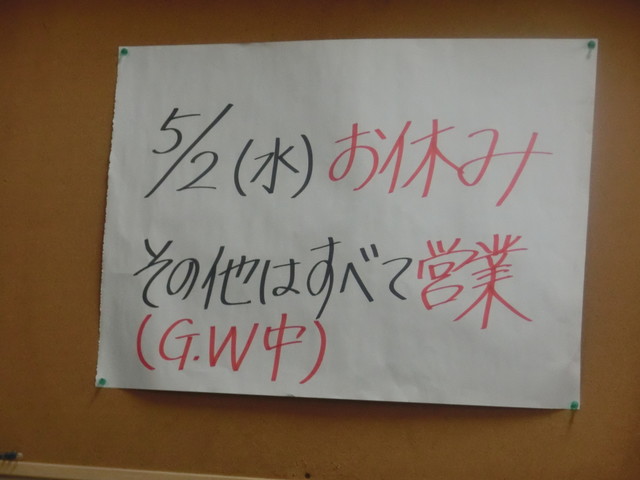 5/2(水)お休み
その他はすべて営業
(G.W中)